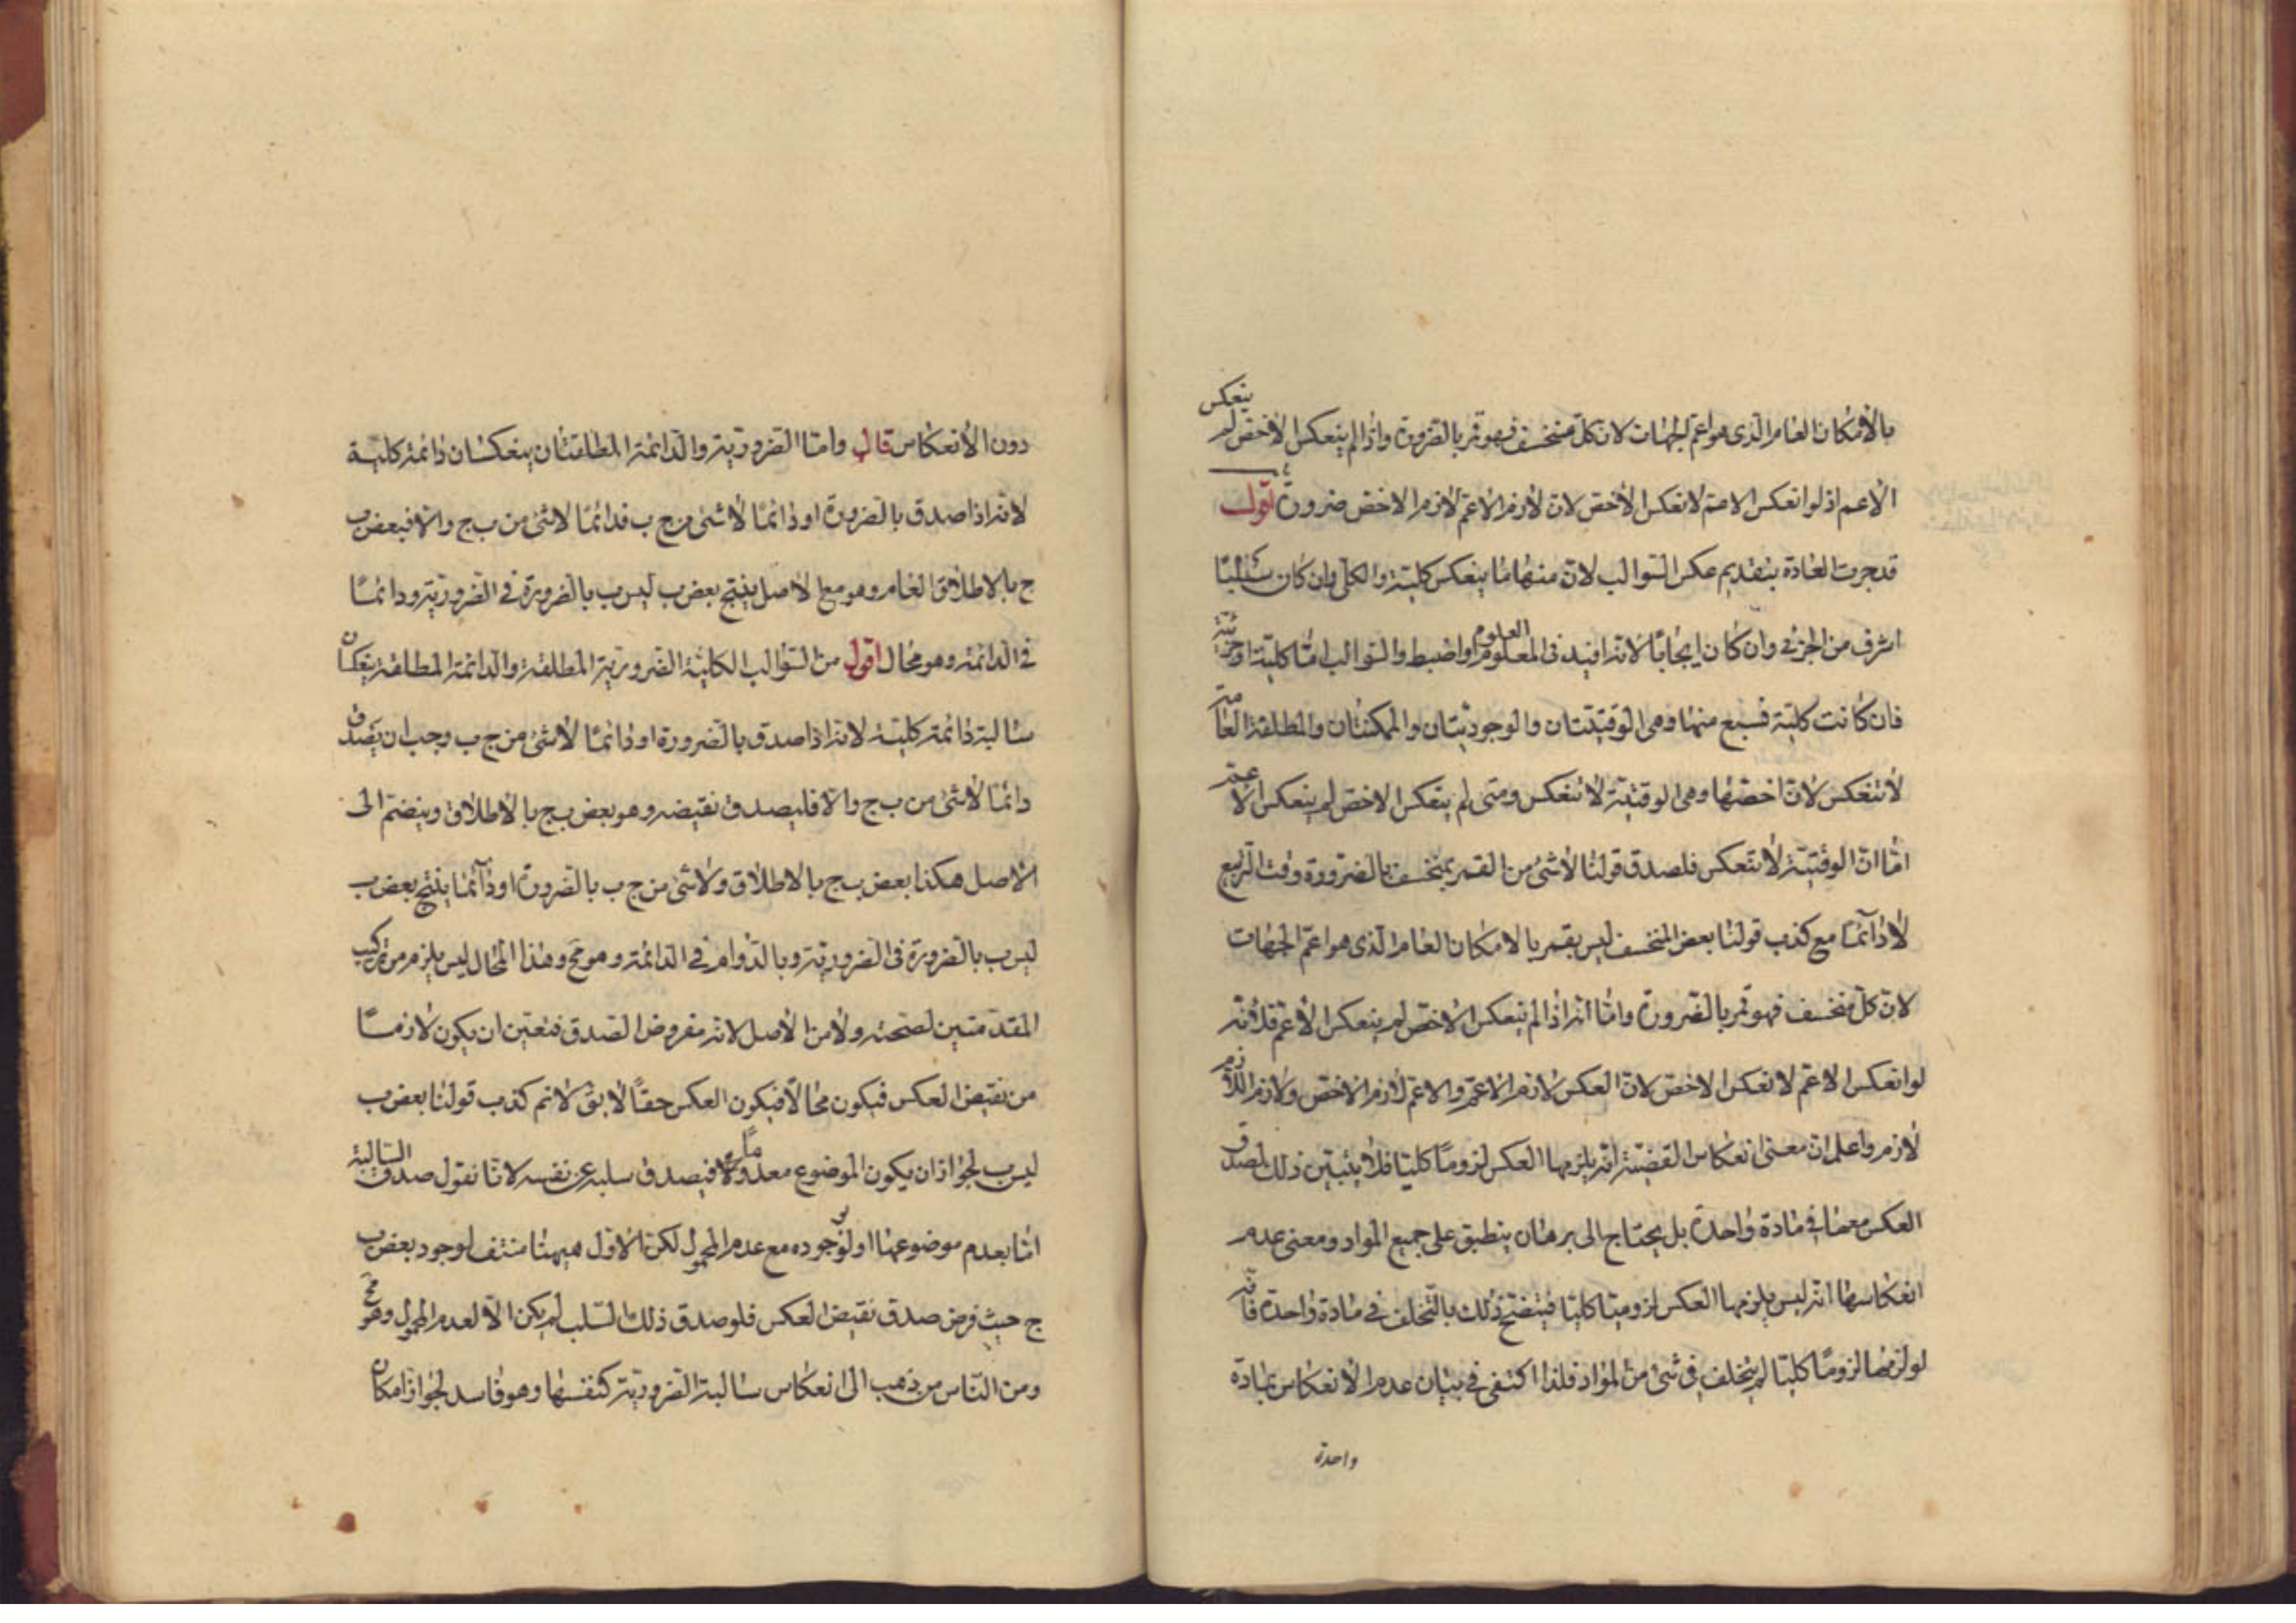 بالامكان العام الذى هو اعم الجهات لان كل منخسف فهو قمر بالضرورة واذا لم ينعكس الاخص لم ينعكس
الاعم اذ لو انعكس الاعم لانعكس الاخص لان لازم الاعم لازم الاخص ضرورة اقول
قد جرت العادة بتقديم عكس السوالب لان منها ما ينعكس كلية والكلى وان كان سلبيا
اشرف من الجزئى وان كان ايجابيا لانه افيد فى العلوم واضبط والسوالب اما كلية او جزئية
فان كانت كلية فسبع منها وهى الوقتيتان والوجوديتان والممكنتان والمطلقة العامة
لا تنعكس لان اخصها وهى الوقتية لا تنعكس ومتى لم ينعكس الاخص لم ينعكس الاعم
اما ان الوقتية لا تنعكس فلصدق قولنا لا شئ من القمر بمنخسف بالضرورة وقت التربيع
لا دائما مع كذب قولنا بعض المنخسف ليس بقمر بالامكان العام الذى هو اعم الجهات
لان كل منخسف فهو قمر بالضرورة واما انه اذا لم ينعكس الاخص لم ينعكس الاعم فلانه
لو انعكس الاعم لانعكس الاخص لان العكس لازم الاعم والاعم لازم الاخص ولازم اللازم
لازم واعلم ان معنى انعكاس القضية انه يلزمها العكس لزوما كليا فلا يتبين ذلك لصدق
العكس معها فى مادة واحدة بل يحتاج الى برهان ينطبق على جميع المواد ومعنى عدم
انعكاسها انه ليس يلزمها العكس لزوميا كليا فيتضح ذلك بالتخلف فى مادة واحدة فانه
لو لزمها لزوما كليا لم يتخلف فى شئ من المواد فلذا اكتفى فى بيان عدم الانعكاس بمادة
واحدة
دون الانعكاس قال واما الضرورية والدائمة المطلقتان ينعكسان دائمة كلية
لانه اذا صدق بالضرورة او دائما لا شئ من ج ب فدائما لا شئ من ب ج والا فبعض ب
ج بالاطلاق العام وهو مع الاصل ينتج بعض ب ليس ب بالضرورة فى الضرورية ودائما
فى الدائمة وهو محال اقول من السوالب الكلية الضرورية المطلقة والدائمة المطلقة ينعكسان
سالبة دائمة كلية لانه اذا صدق بالضرورة او دائما لا شئ من ج ب وجب ان يصدق
دائما لا شئ من ب ج والا فليصدق نقيضه وهو بعض ب ج بالاطلاق وينضم الى
الاصل هكذا بعض ب ج بالاطلاق ولا شئ من ج ب بالضرورة او دائما ينتج بعض ب
ليس ب بالضرورة فى الضرورية وبالدوام فى الدائمة وهو مح وهذا المحال ليس يلزم من تركيب
المقدمتين لصحته ولا من الاصل لانه مفروض الصدق فتعين ان يكون لازما
من نقيض العكس فيكون محالا فيكون العكس حقا لا يق لا نم كذب قولنا بعض ب
ليس ب لجواز ان يكون الموضوع معدوما فيصدق سلبه عن نفسه لانا نقول صدق السالبة
اما بعدم موضوعها او لوجوده مع عدم المحمول لكن الاول هيهنا منتف لوجود بعض ب
ج حيث فرض صدق نقيض العكس فلو صدق ذلك السلب لم يكن الا لعدم المحمول وهو مح
ومن الناس من ذهب الى انعكاس سالبة الضرورية كنفسها وهو فاسد لجواز امكان